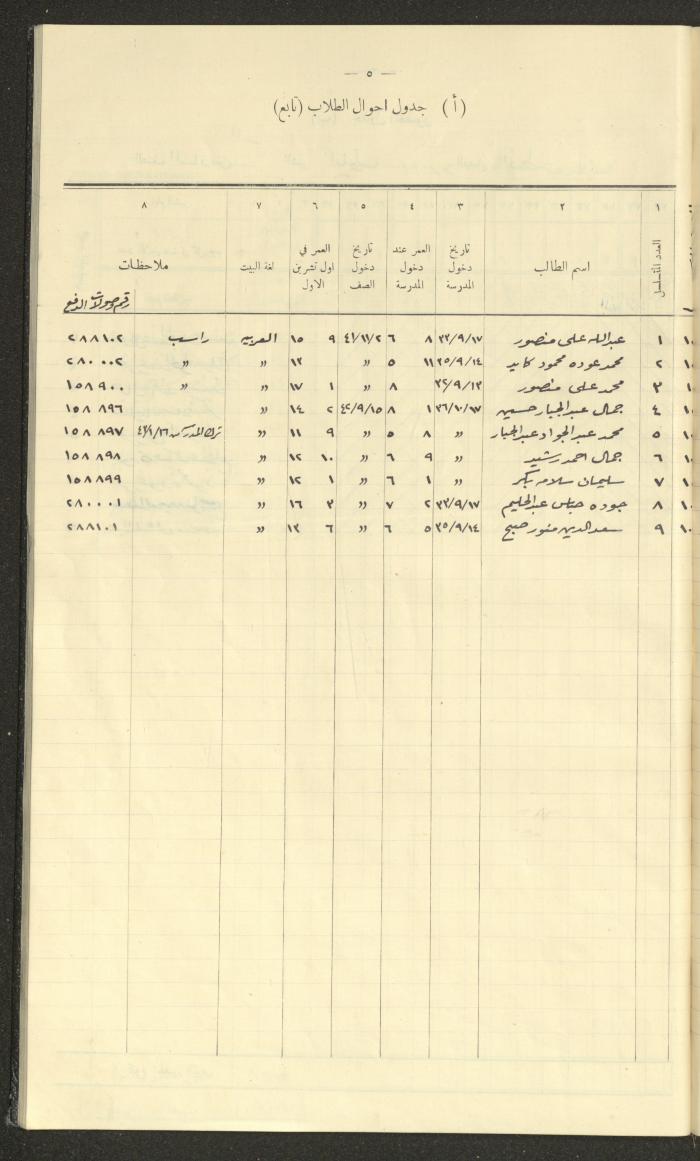 — ٥ —
(أ) جدول احوال الطلاب (تابع)
١ ٢ ٣ ٤ ٥ ٦ ٧ ٨
العدد المتسلسل اسم الطالب تاريخ دخول المدرسة العمر عند دخول المدرسة تاريخ دخول الصف العمر في اول تشرين الاول لغة البيت ملاحظات
رقم وصولات الدفع
١ عبدالله علي منصور ٣٣/٩/١٧ ٨ ٦ ٤١/١١/٢ ٩ ١٥ العربيه راسب ٢٨٨١٠٢
٢ محمد عوده محمود كايد ٣٥/٩/١٤ ١١ ٥ " ١٣ " " ٢٨٠٠٠٢
٣ محمد علي منصور ٣٢/٩/١٣ ٨ " ١ ١٧ " " ١٥٨٩٠٠
٤ جمال عبدالجبار حسين ٣٦/١٠/١٧ ١ ٨ ٤٢/٩/١٥ ٢ ١٤ " ١٥٨٨٩٦
٥ محمد عبدالجواد عبدالجبار " ٨ ٥ " ٩ ١١ " ترك المدرسة ٤٣/١/١٦ ١٥٨٨٩٧
٦ جمال احمد رشيد " ٩ ٦ " ١٠ ١٢ " ١٥٨٨٩٨
٧ سليمان سلامه بكر " ١ ٦ " ١ ١٢ " ١٥٨٨٩٩
٨ جوده عباس عبدالحليم ٣٣/٩/١٧ ٢ ٧ " ٣ ١٦ " ٢٨٠٠٠١
٩ سعدالدين منور صبح ٣٥/٩/١٤ ٥ ٦ " ٦ ١٣ " ٢٨٨١٠١